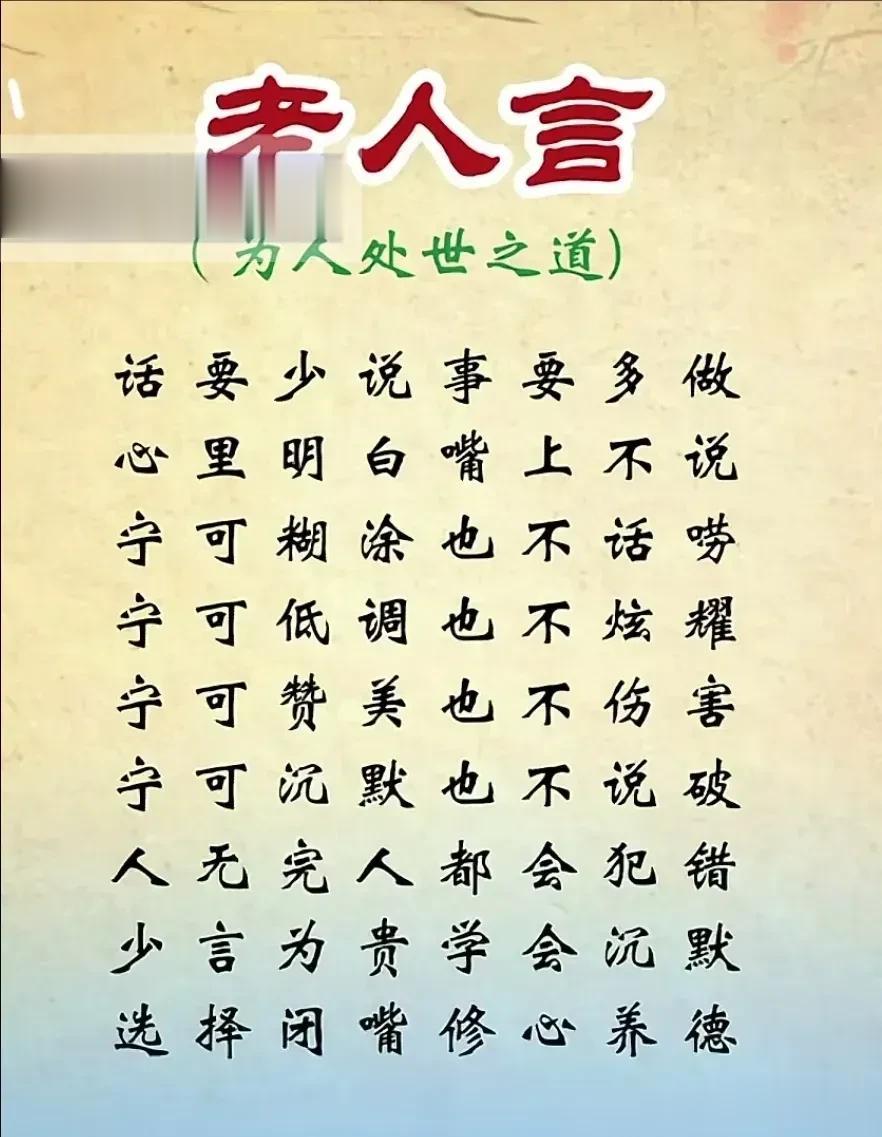 老人言
(为人处世之道)
话要少说事要多做
心里明白嘴上不说
宁可糊涂也不话唠
宁可低调也不炫耀
宁可赞美也不伤害
宁可沉默也不说破
人无完人都会犯错
少言为贵学会沉默
选择闭嘴修心养德